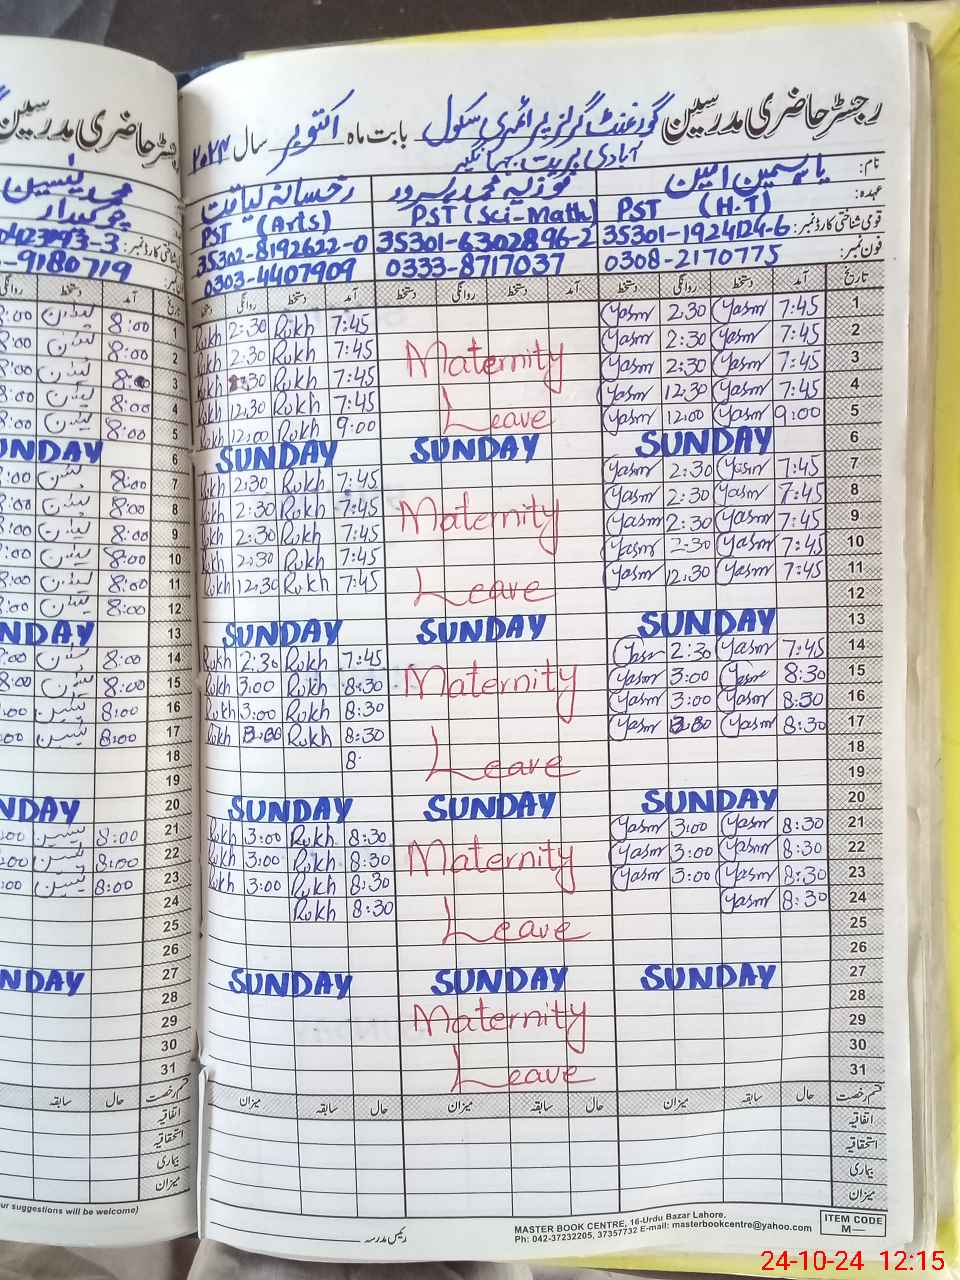 رجسٹر حاضری مدرسین گورنمنٹ گرلز پرائمری سکول بابت ماہ اکتوبر سال ۲۰۲۴
آبادی
نام: یاسمین امین فوزیہ محمد سرور رخسانہ لیاقت
عہدہ: PST (H.T) PST (Sci-Math) PST (Arts)
قومی شناختی کارڈ نمبر: 35301-1924124-6 35301-6302896-2 35302-8192622-0
فون نمبر: 0308-2170775 0333-8717037 0303-4407909
تاریخ آمد دستخط روانگی دستخط آمد دستخط روانگی دستخط آمد دستخط روانگی
1 7:45 Yasm 2:30 Yasm 7:45 Rukh 2:30 Rukh
2 7:45 Yasm 2:30 Yasm Maternity 7:45 Rukh 2:30 Rukh
3 7:45 Yasm 2:30 Yasm 7:45 Rukh 2:30 Rukh
4 7:45 Yasm 12:30 Yasm Leave 7:45 Rukh 12:30 Rukh
5 9:00 Yasm 12:00 Yasm 9:00 Rukh 12:00 Rukh
6 SUNDAY SUNDAY SUNDAY
7 7:45 Yasm 2:30 Yasm 7:45 Rukh 2:30 Rukh
8 7:45 Yasm 2:30 Yasm Maternity 7:45 Rukh 2:30 Rukh
9 7:45 Yasm 2:30 Yasm 7:45 Rukh 2:30 Rukh
10 7:45 Yasm 2:30 Yasm 7:45 Rukh 2:30 Rukh
11 7:45 Yasm 12:30 Yasm Leave 7:45 Rukh 12:30 Rukh
12
13 SUNDAY SUNDAY SUNDAY
14 7:45 Yasm 2:30 Yasm 7:45 Rukh 2:30 Rukh
15 8:30 Yasm 3:00 Yasm Maternity 8:30 Rukh 3:00 Rukh
16 8:30 Yasm 3:00 Yasm 8:30 Rukh 3:00 Rukh
17 8:30 Yasm Yasm 8:30 Rukh Rukh
18 Leave 8:
19
20 SUNDAY SUNDAY SUNDAY
21 8:30 Yasm 3:00 Yasm 8:30 Rukh 3:00 Rukh
22 8:30 Yasm 3:00 Yasm Maternity 8:30 Rukh 3:00 Rukh
23 8:30 Yasm 3:00 Yasm 8:30 Rukh 3:00 Rukh
24 8:30 Yasm 8:30 Rukh
25 Leave
26
27 SUNDAY SUNDAY SUNDAY
28 Maternity
29
30 Leave
31
قسم رخصت حال سابقہ میزان حال سابقہ میزان حال سابقہ میزان
اتفاقیہ
استحقاقیہ
بیماری
میزان
رئیس مدرسہ
MASTER BOOK CENTRE, 16-Urdu Bazar Lahore.
Ph: 042-37232205, 37357732 E-mail: masterbookcentre@yahoo.com
ITEM CODE
M—
محمد یٰسین
چوکیدار
0423793-3
9180719
تاریخ آمد دستخط
1 8:00
2 8:00
3 8:00
4 8:00
5 8:00
6 SUNDAY
7 8:00
8 8:00
9 8:00
10 8:00
11 8:00
12 8:00
13 NDAY
14 8:00
15 8:00
16 8:00
17 8:00
18
19
20 NDAY
21 8:00
22 8:00
23 8:00
24
25
26
27 NDAY
28
29
30
31
قسم رخصت حال سابقہ
اتفاقیہ
استحقاقیہ
بیماری
میزان
ur suggestions will be welcome)
24-10-24 12:15